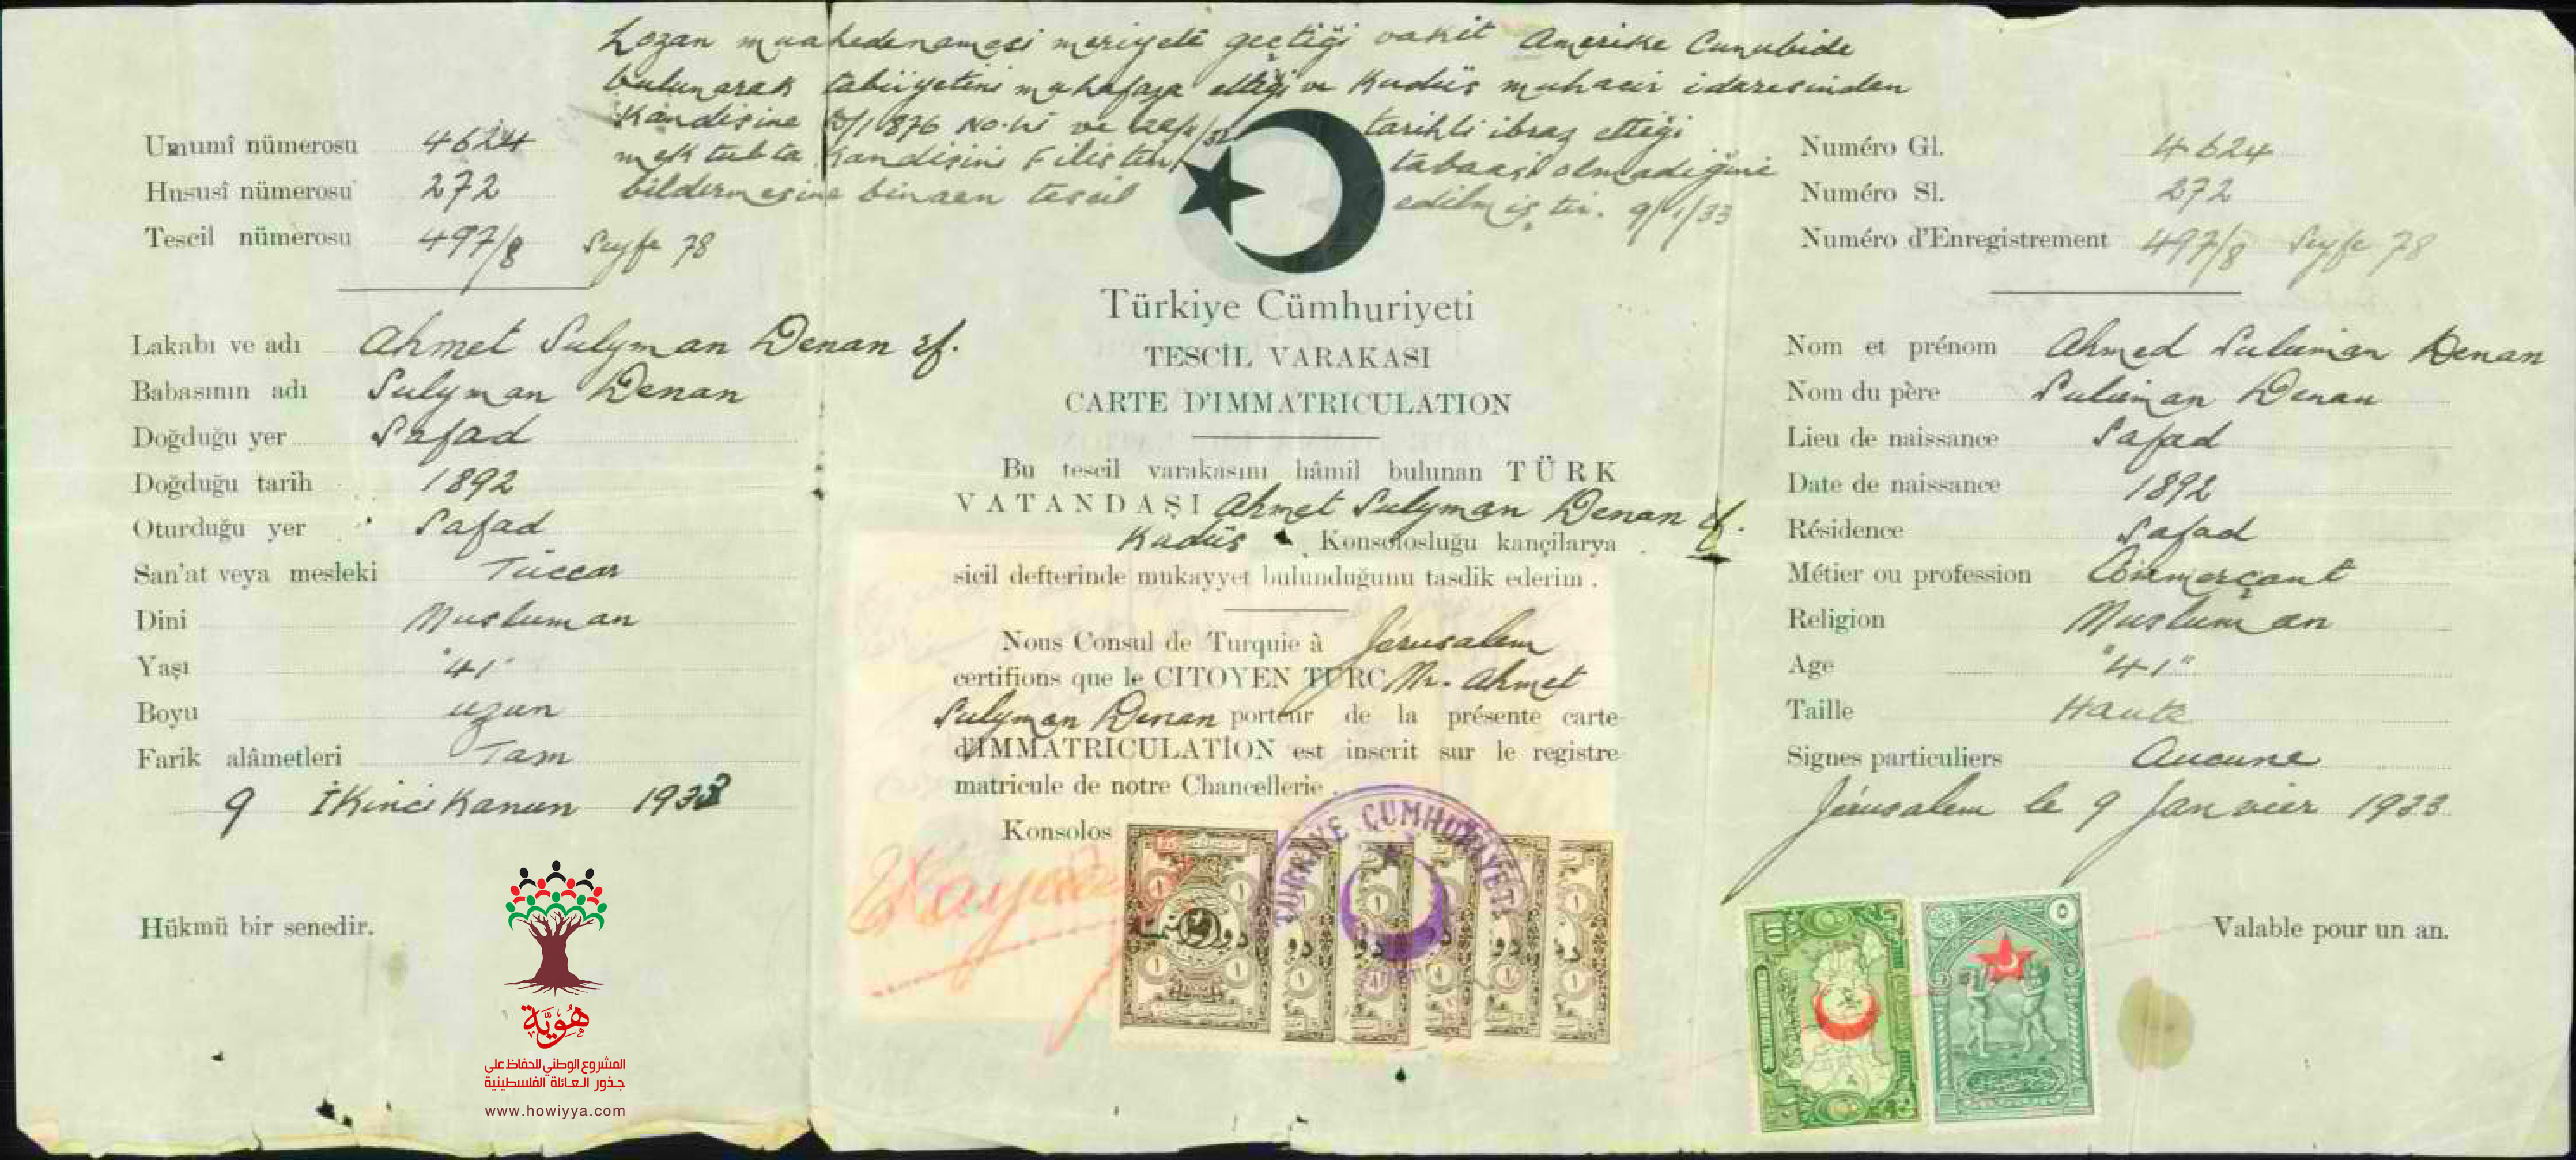 Lozan muahedenamesi meriyete geçtiği vakit Amerike Cunubide
bulunarak tabiiyetini muhafaza ettiği ve Kudüs muhacir idaresinden
Kandisine No.lu ve tarihli ibraz ettiği
mektubta Kandisini Filistin tabaasi olmadiğini
bildirmesine binaen tescil edilmiştir. 9/1/33
Umumî nümerosu 4624
Hususî nümerosu 272
Tescil nümerosu 497/8 Sayfa 78
Lakabı ve adı Ahmet Sulyman Denan ef.
Babasının adı Sulyman Denan
Doğduğu yer Safad
Doğduğu tarih 1892
Oturduğu yer Safad
San'at veya mesleki Tüccar
Dini Musluman
Yaşı "41"
Boyu uzun
Farik alâmetleri Tam
9 İkinci Kanun 1933
Hükmü bir senedir.
هُوِيَّة
المشروع الوطني للحفاظ على
جذور العائلة الفلسطينية
www.howiyya.com
Türkiye Cümhuriyeti
TESCİL VARAKASI
CARTE D'IMMATRICULATION
Bu tescil varakasını hâmil bulunan TÜRK
VATANDAŞI Ahmet Sulyman Denan ef.
Kudüs Konsolosluğu kançilarya
sicil defterinde mukayyet bulunduğunu tasdik ederim .
Nous Consul de Turquie à Jérusalem
certifions que le CITOYEN TURC Mr. Ahmet
Sulyman Denan porteur de la présente carte
d'IMMATRICULATİON est inscrit sur le registre
matricule de notre Chancellerie .
Konsolos
TÜRKİYE CUMHURİYETİ
Numéro Gl. 4624
Numéro Sl. 272
Numéro d'Enregistrement 497/8 Seyfe 78
Nom et prénom Ahmed Suleiman Denan
Nom du père Suleiman Denan
Lieu de naissance Safad
Date de naissance 1892
Résidence Safad
Métier ou profession Commerçant
Religion Musluman
Age "41"
Taille Haute
Signes particuliers Aucune
Jérusalem le 9 Janvier 1933
10
٥
Valable pour un an.